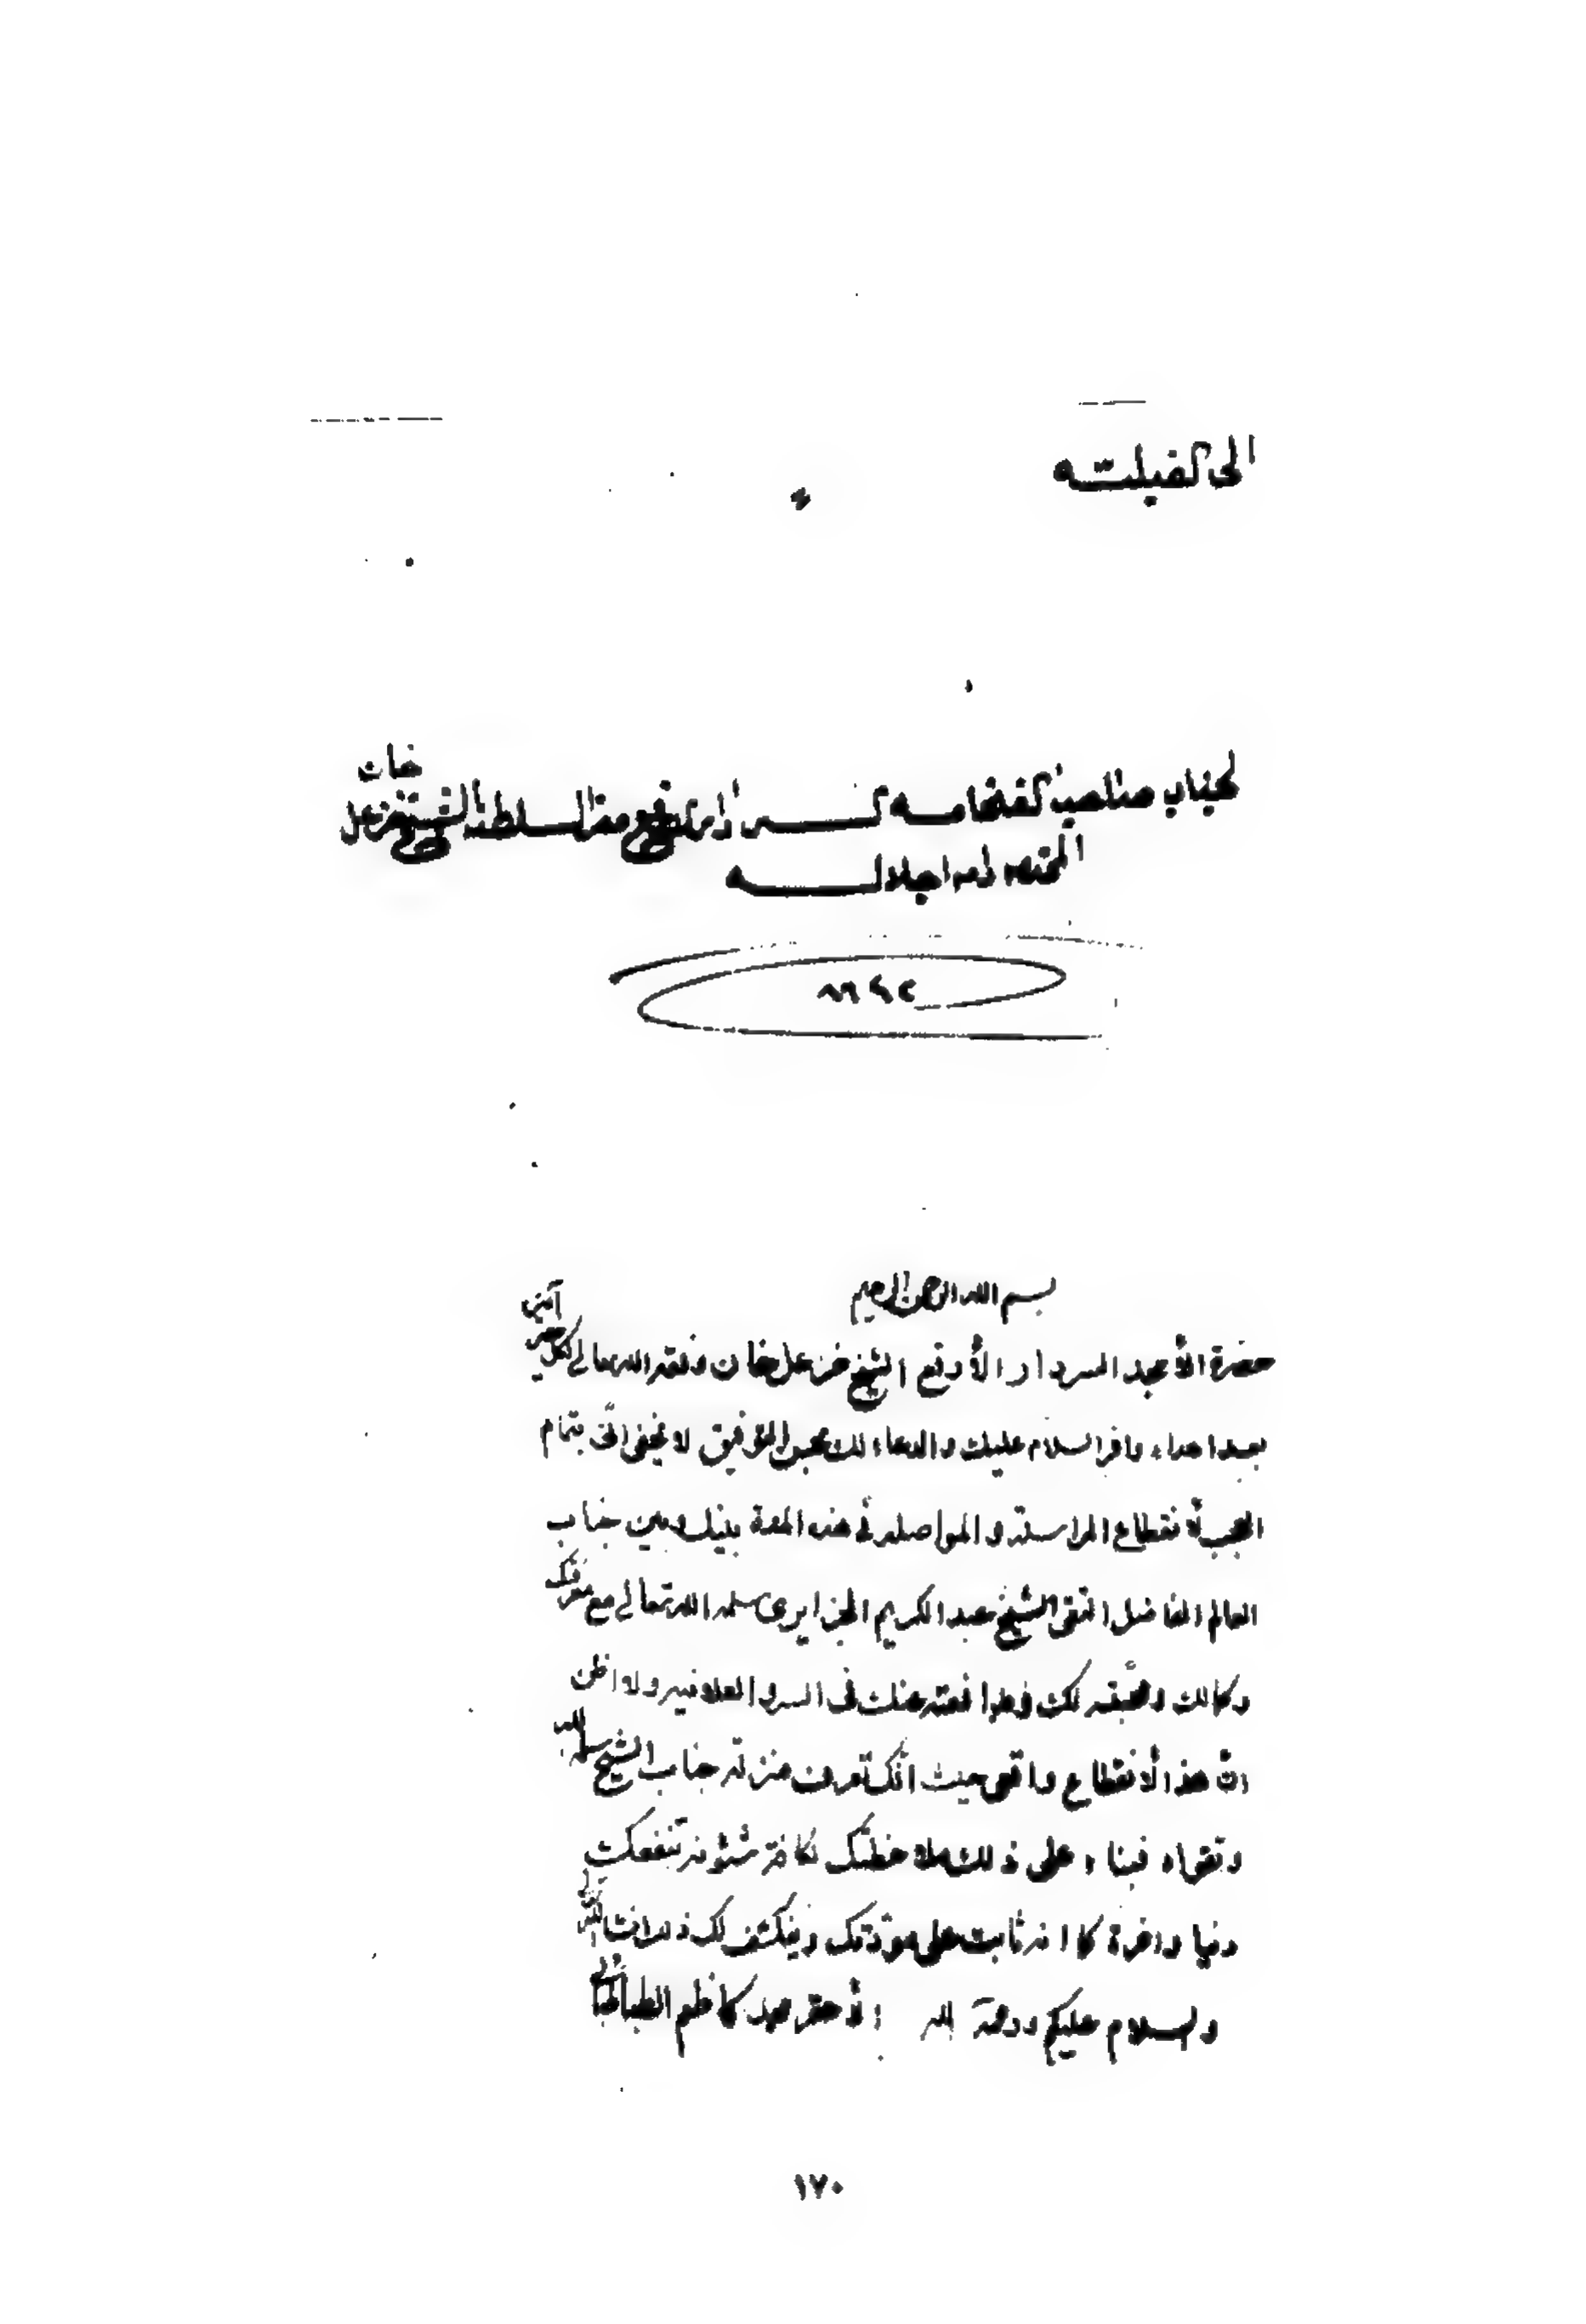 الى الفيليه
لجناب صاحب الفخامه السردار ارفع معز السلطنه الشيخ خزعل خان
المحترم دام اجلاله
٨٦٤٢
بسم الله الرحمن الرحيم
حضرة الأمجد السردار الأرفع الشيخ خزعل خان وفقه الله تعالى لكل خير آمين
بعد اهداء وافر السلام عليك والدعاء لك بمحبن التوفيق لا يخفى انّى بتمام
العجب لأنقطاع المراسلة والمواصلة في هذه المدة بينك وبين جناب
العالم الفاضل التقي الشيخ عبد الكريم الجزايري سلمه الله تعالى مع معرفتك
وكالك ومحبّته لك ومدافعته عنك في السر والعلانيه ولا اظن
انّ هذا الأنقطاع واقعي حيث انّك تعرف منزلة جناب الشيخ سلمه الله
وتقواه فبناء على ذلك ملاحظتك لكافة شؤونه تنفعك
دنيا واخرة كما انه ثابت على مودتك وينكشف لك ذلك انشاء الله
والسلام عليكم ورحمة الله الأحقر محمد كاظم الطباطبائي
١٧٠